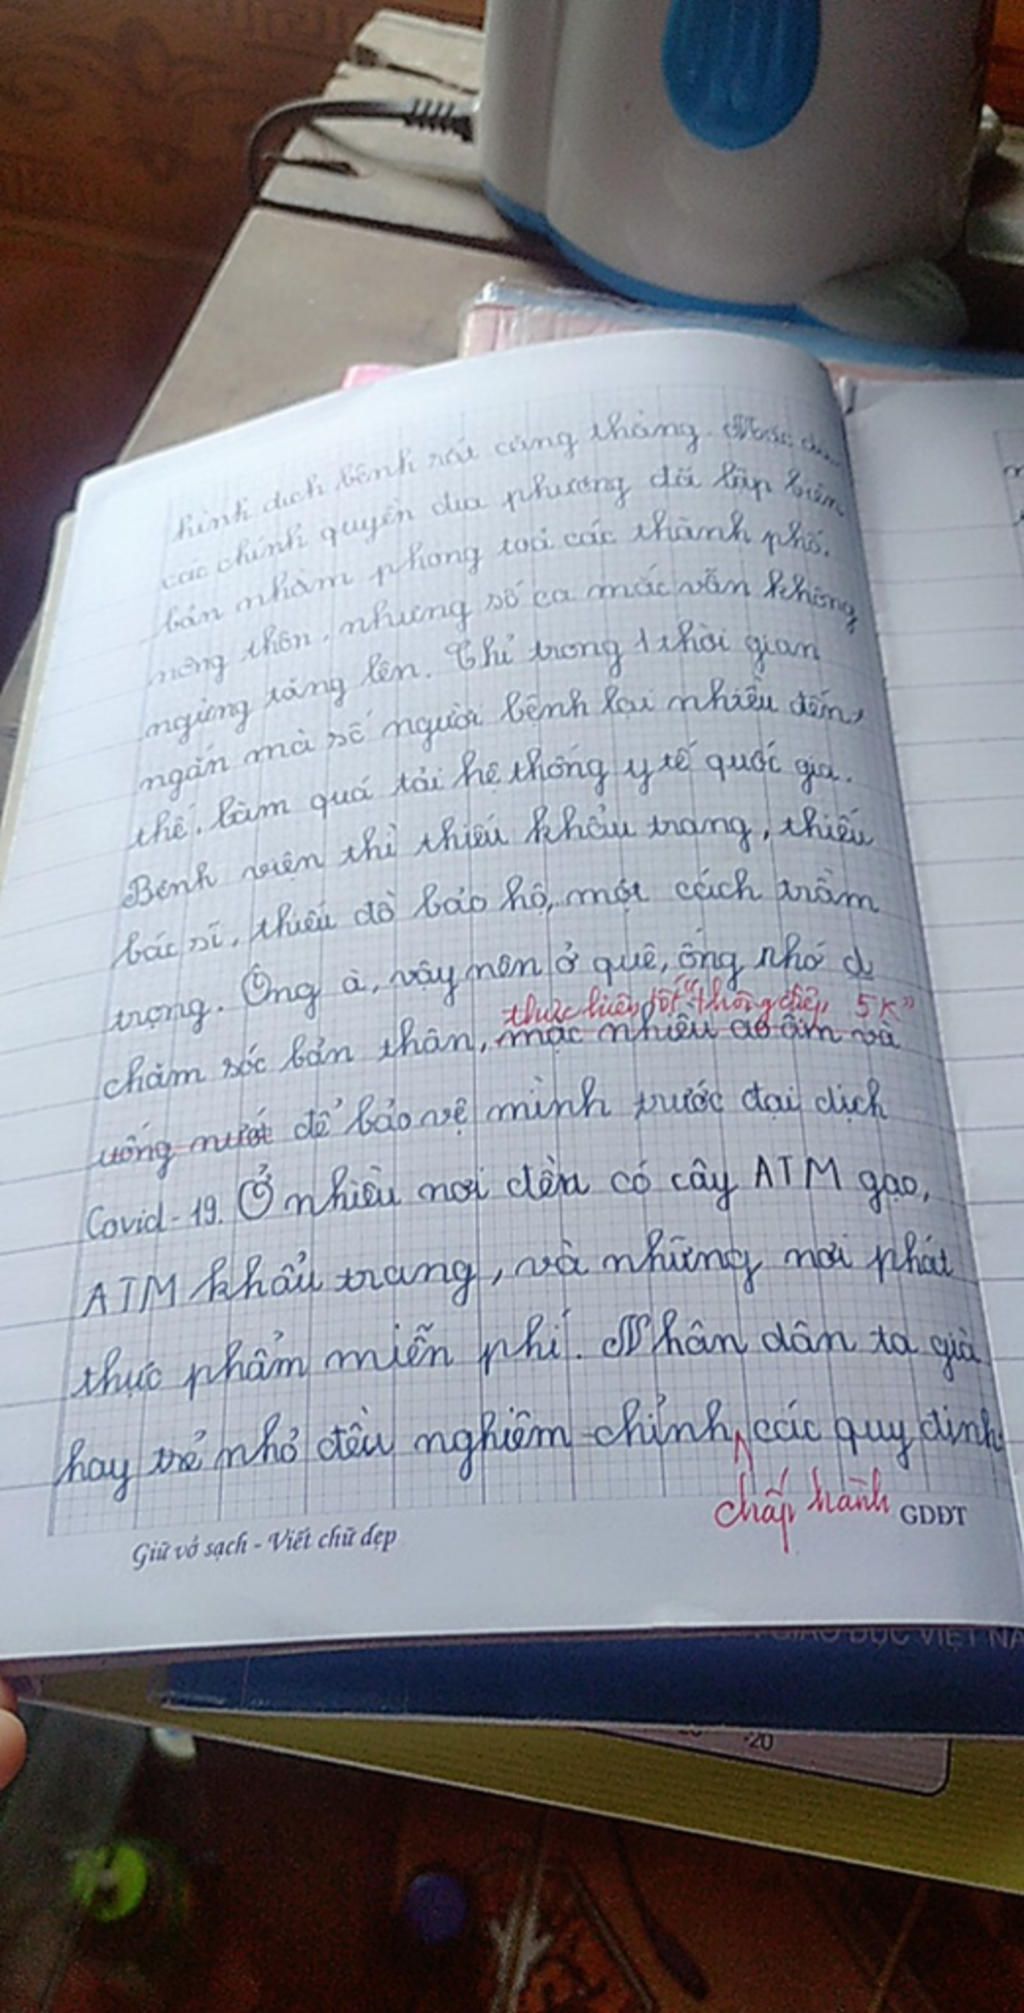 hình dịch bệnh rất căng thẳng. Mặc dù
các chính quyền địa phương đã lập biên
bản nhằm phong toả các thành phố,
nông thôn, nhưng số ca mắc vẫn không
ngừng tăng lên. Chỉ trong 1 thời gian
ngắn mà số người bệnh lại nhiều đến
thế, làm quá tải hệ thống y tế quốc gia.
Bệnh viện thì thiếu khẩu trang, thiếu
bác sĩ, thiếu đồ bảo hộ, một cách trầm
trọng. Ông à, vậy nên ở quê, ông nhớ
thực hiện tốt "thông điệp 5K"
chăm sóc bản thân, mặc nhiều áo ấm và
uống nướt để bảo vệ mình trước đại dịch
Covid-19. Ở nhiều nơi đều có cây ATM gạo,
ATM khẩu trang, và những nơi phát
thực phẩm miễn phí. Nhân dân ta già
hay trẻ nhỏ đều nghiêm chỉnh các quy định
chấp hành
Giữ vở sạch - Viết chữ đẹp
GDĐT
GIÁO DỤC VIỆT NA
20